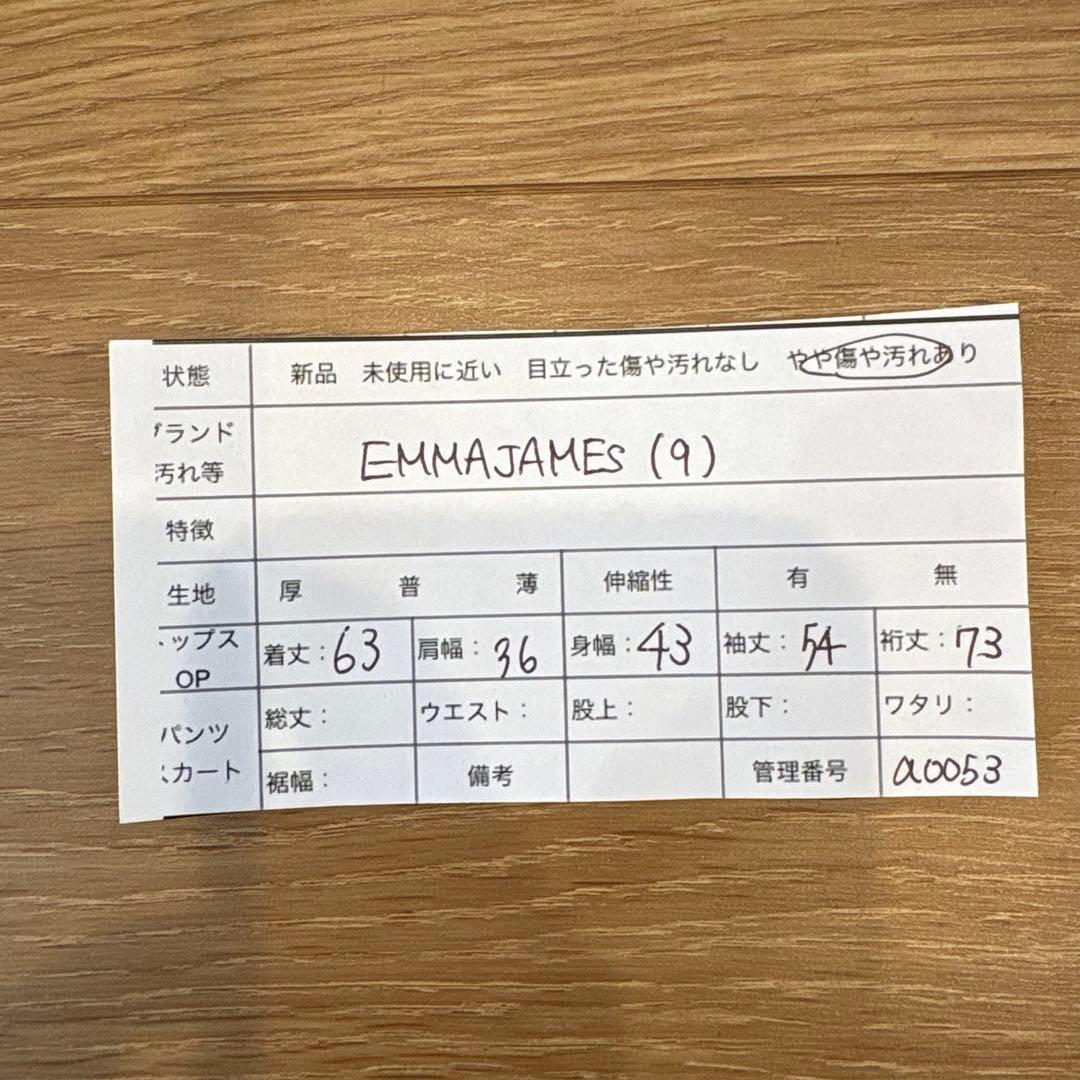 状態 新品 未使用に近い 目立った傷や汚れなし やや傷や汚れあり
ブランド
汚れ等 EMMAJAMES (9)
特徴
生地 厚 普 薄 伸縮性 有 無
トップス
OP 着丈：63 肩幅：36 身幅：43 袖丈：54 裄丈：73
パンツ 総丈： ウエスト： 股上： 股下： ワタリ：
スカート 裾幅： 備考 管理番号 a0053